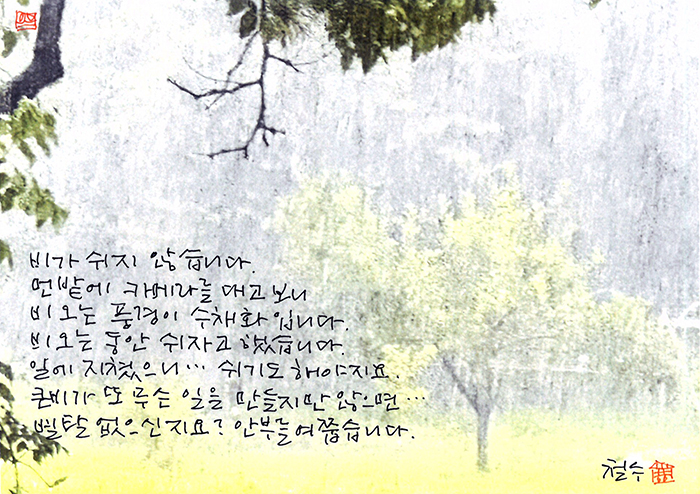 비가 쉬지 않습니다.
먼밭에 카메라를 대고 보니
비 오는 풍경이 수채화입니다.
비 오는 동안 쉬자고 했습니다.
일에 지쳤으니… 쉬기도 해야지요.
큰비가 또 무슨 일을 만들지만 않으면…
별탈 없으신지요? 안부를 여쭙습니다.
철수